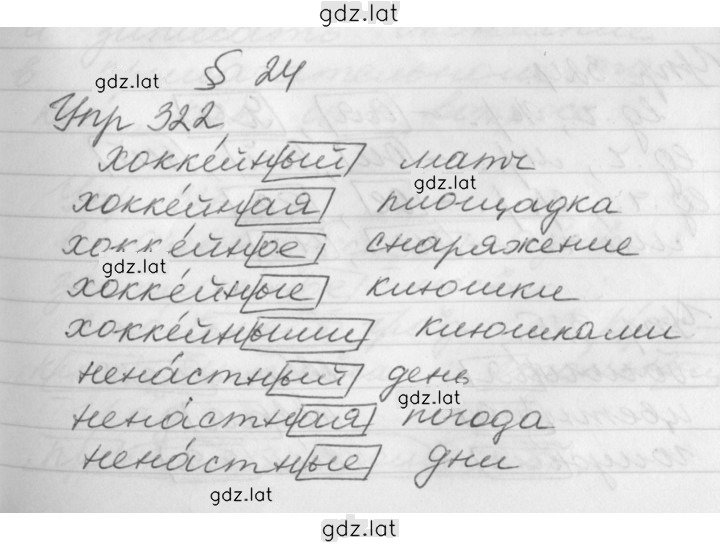 gdz.lat
gdz.lat
§ 24
Упр 322
хокке́йный матч
gdz.lat
хокке́йная площадка
хокке́йное снаряжение
gdz.lat
хокке́йные клюшки
хокке́йными клюшками
нена́стный день
gdz.lat
нена́стная погода
нена́стные дни
gdz.lat
gdz.lat